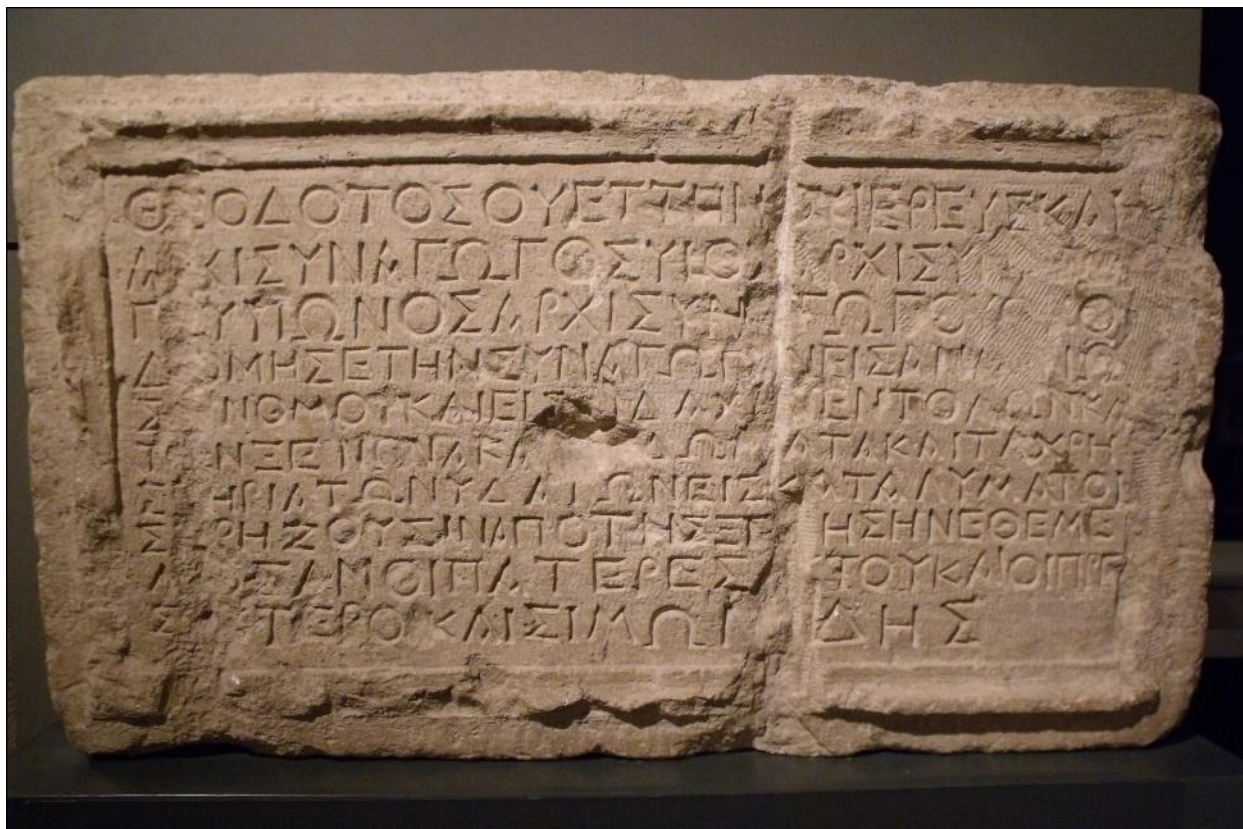 ΘΕΟΔΟΤΟΣ ΟΥΕΤΤΗΝ ΙΕΡΕΥΣ ΚΑΙ
ΑΡΧΙΣΥΝΑΓΩΓΟΣ ΥΙΟΣ ΑΡΧΙΣΥ
ΥΙΩΝΟΣ ΑΡΧΙΣΥΝ ΓΩΓΟΥ Ο
ΔΟΜΗΣΕ ΤΗΝ ΣΥΝΑΓΩΓ Ν ΕΙΣ ΑΝΑ
ΝΟΜΟΥ ΚΑΙ ΕΙΣ ΔΑΧΗΝ ΕΝΤΟΛΩΝ ΚΑΙ
ΤΟΝ ΞΕΝΩΝΑ ΚΑ ΔΩΜΑΤΑ ΚΑΙ ΤΑ ΧΡΗ
ΣΤΗΡΙΑ ΤΩΝ ΥΔΑΤΩΝ ΕΙΣ ΚΑΤΑΛΥΜΑ ΤΟΙ
Σ ΧΡΗΖΟΥΣΙΝ ΑΠΟ ΤΗΣ ΞΕ ΗΣ ΗΝ ΕΘΕΜΕ
Λ ΣΑΝ ΟΙ ΠΑΤΕΡΕΣ ΤΟΥ ΚΑΙ ΟΙ ΠΡΕ
Σ ΤΕΡΟΙ ΚΑΙ ΣΙΜΩΝ ΔΗΣ